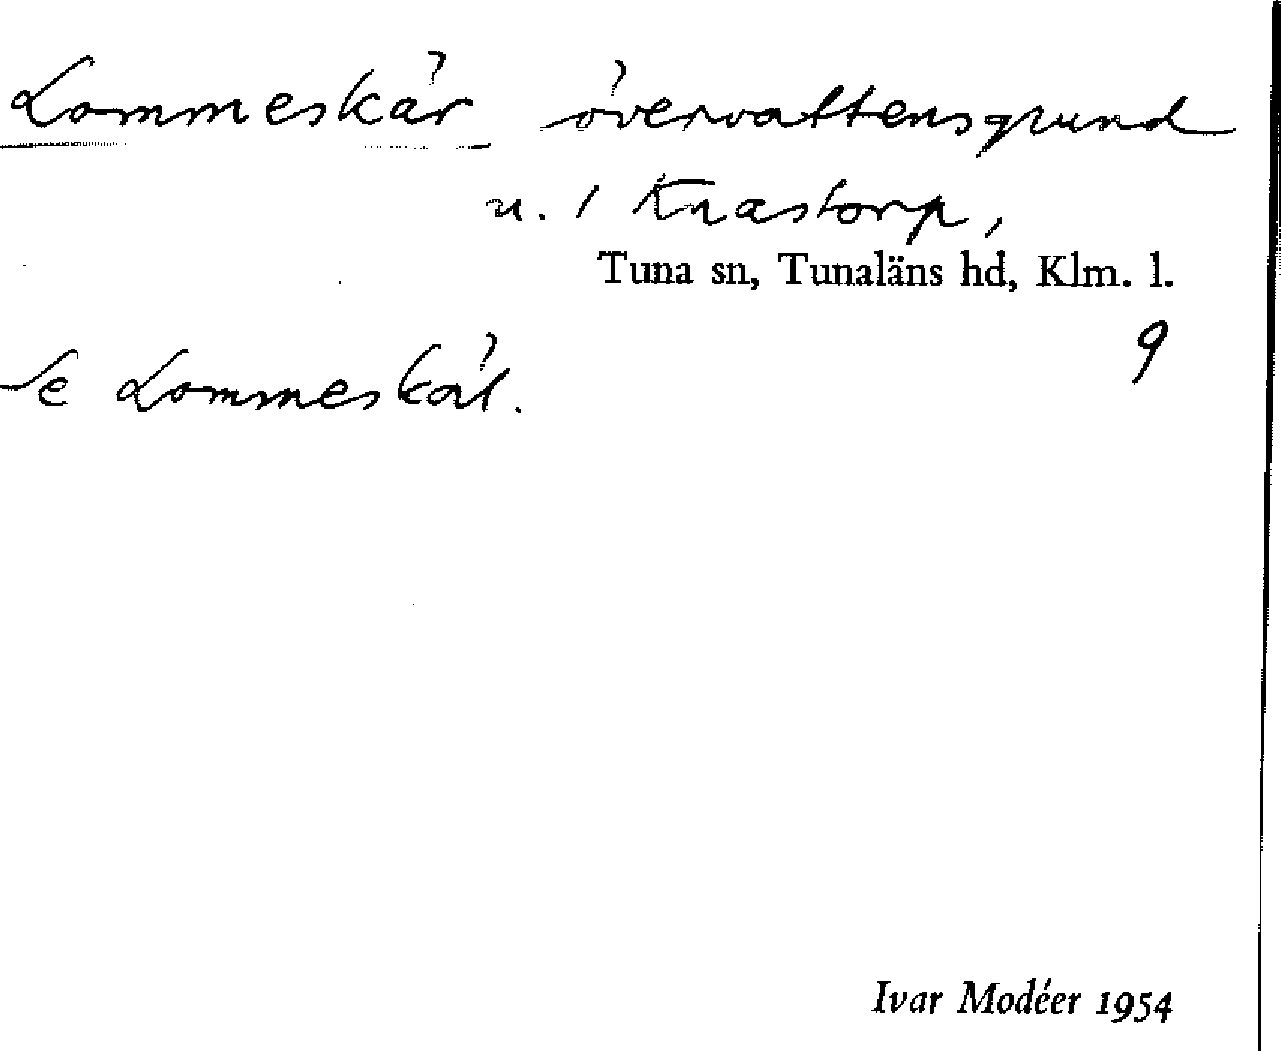 Lommeskär övervattensgrund
u. 1 Knastorp,
Tuna sn, Tunaläns hd, Klm. l.
9
Se Lommeskäl.
Ivar Modéer 1954